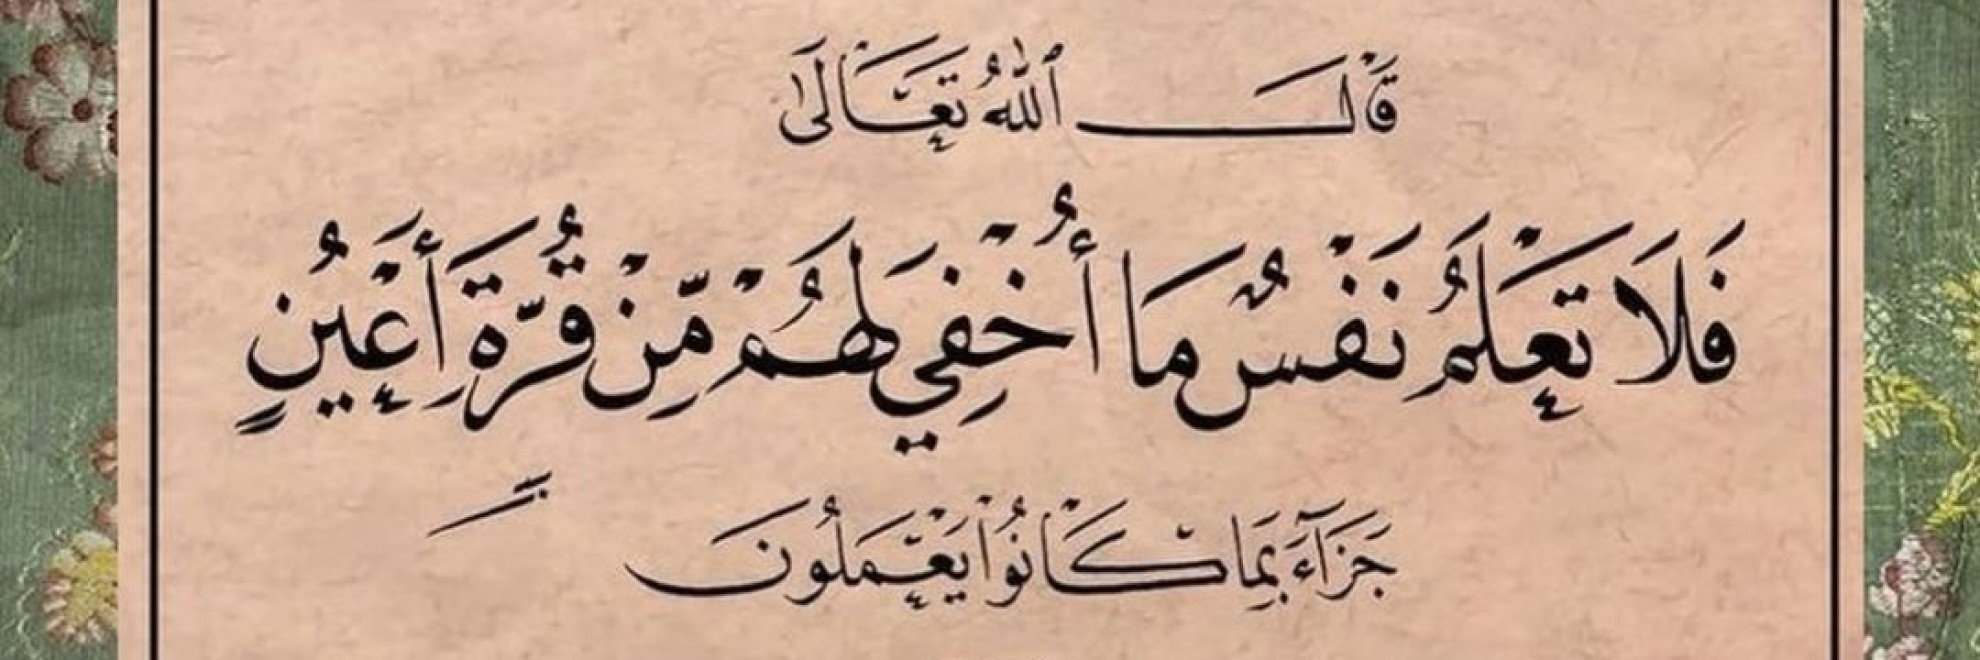 قَالَ ٱللهُ تَعَالَىٰ
فَلَا تَعْلَمُ نَفْسٌ مَا أُخْفِيَ لَهُمْ مِّنْ قُرَّةِ أَعْيُنٍ
جَزَآءَ بِمَا كَانُوا يَعْمَلُونَ